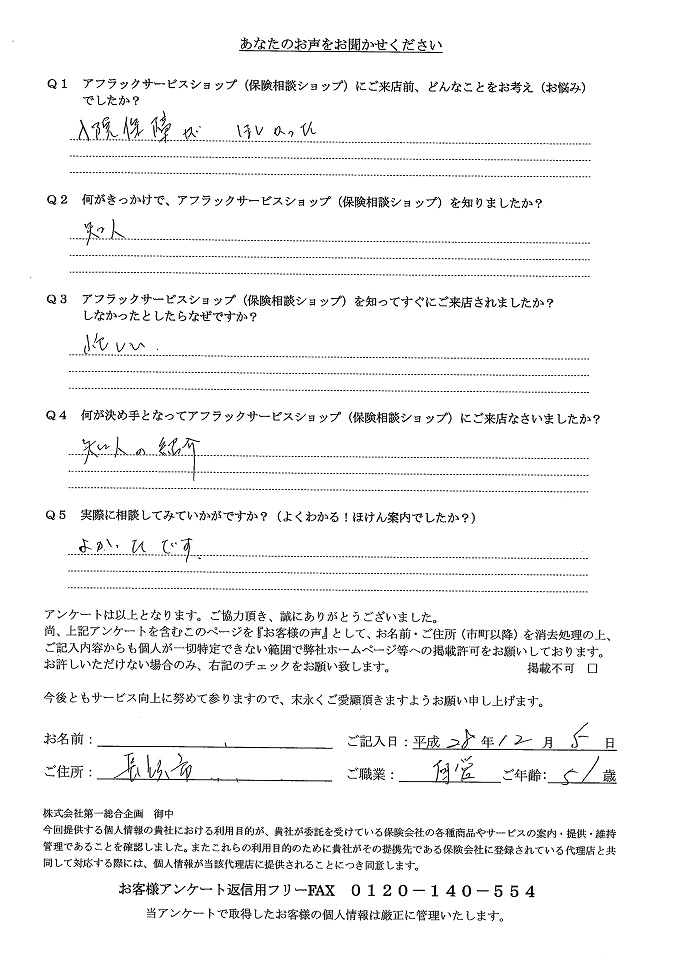 あなたのお声をお聞かせください
Q1 アフラックサービスショップ（保険相談ショップ）にご来店前、どんなことをお考え（お悩み）
でしたか？
入院保障が ほしかった
Q2 何がきっかけで、アフラックサービスショップ（保険相談ショップ）を知りましたか？
知人
Q3 アフラックサービスショップ（保険相談ショップ）を知ってすぐにご来店されましたか？
しなかったとしたらなぜですか？
Q4 何が決め手となってアフラックサービスショップ（保険相談ショップ）にご来店なさいましたか？
知人の紹介
Q5 実際に相談してみていかがですか？（よくわかる！ほけん案内でしたか？）
よかったです。
アンケートは以上となります。ご協力頂き、誠にありがとうございました。
尚、上記アンケートを含むこのページを『お客様の声』として、お名前・ご住所（市町以降）を消去処理の上、
ご記入内容からも個人が一切特定できない範囲で弊社ホームページ等への掲載許可をお願いしております。
お許しいただけない場合のみ、右記のチェックをお願い致します。 掲載不可 □
今後ともサービス向上に努めて参りますので、末永くご愛顧頂きますようお願い申し上げます。
お名前： ご記入日：平成 28 年 12 月 5 日
ご住所： ご職業： ご年齢： 51 歳
株式会社第一総合企画 御中
今回提供する個人情報の貴社における利用目的が、貴社が委託を受けている保険会社の各種商品やサービスの案内・提供・維持
管理であることを確認しました。またこれらの利用目的のために貴社がその提携先である保険会社に登録されている代理店と共
同して対応する際には、個人情報が当該代理店に提供されることにつき同意します。
お客様アンケート返信用フリーFAX 0120－140－554
当アンケートで取得したお客様の個人情報は厳正に管理いたします。